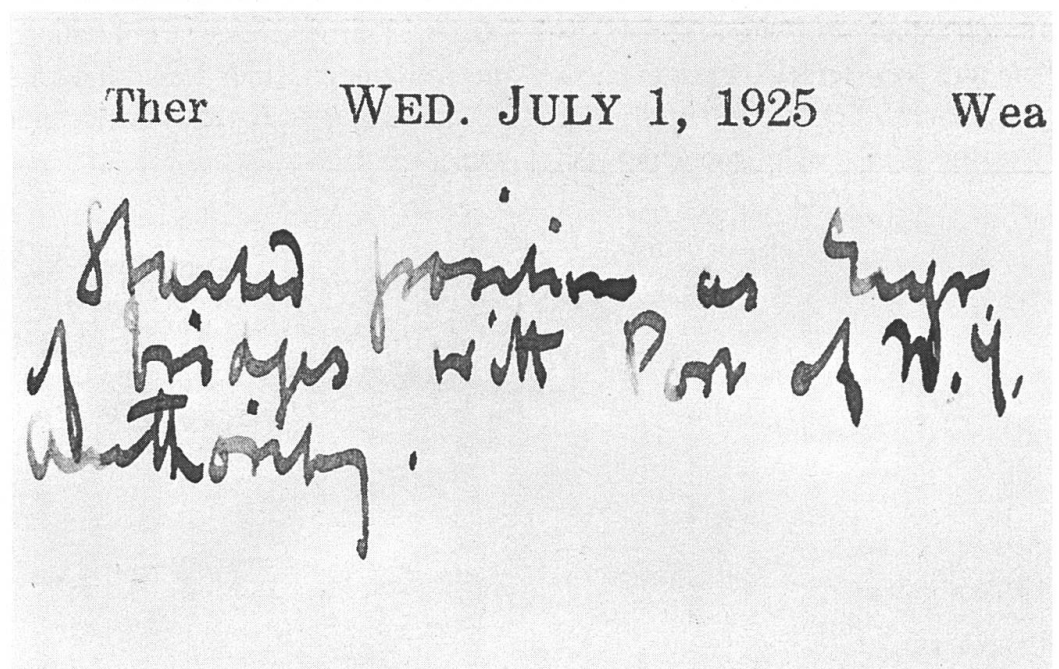 Ther WED. JULY 1, 1925 Wea
Started position as Engr.
of bridges with Port of N.Y.
Authority.